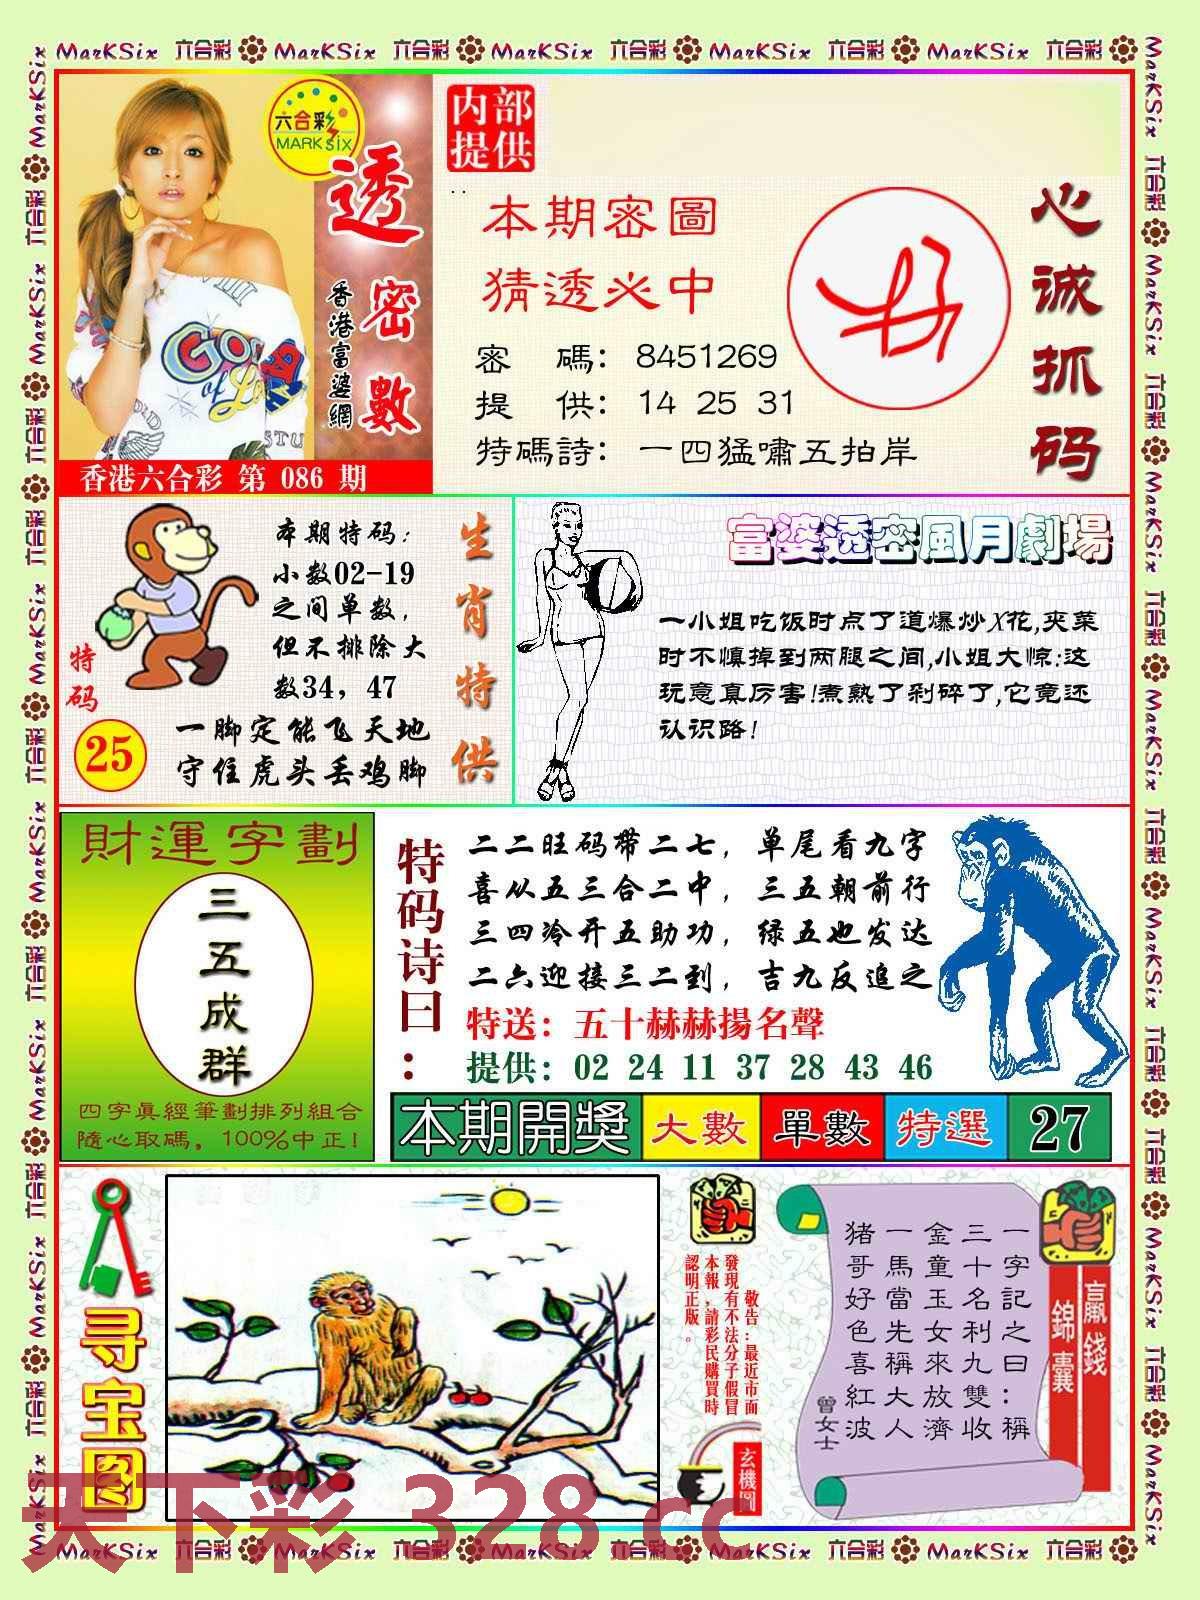 MarKSix 六合彩 MarKSix 六合彩 MarKSix 六合彩 MarKSix 六合彩 MarKSix 六合彩
六合彩
MARK SIX
透密數
香港富婆網
香港六合彩 第 086 期
内部
提供
本期密圖
猜透必中
密 碼: 8451269
提 供: 14 25 31
特碼詩: 一四猛嘯五拍岸
心诚抓码
本期特码:
小数02-19
之间单数,
但不排除大
数34, 47
一脚定能飞天地
守住虎头丢鸡脚
特码
25
生肖特供
富婆透密風月劇場
一小姐吃饭时点了道爆炒X花,夹菜
时不慎掉到两腿之间,小姐大惊:这
玩意真厉害!煮熟了剁碎了,它竟还
认识路!
財運字劃
三五成群
四字真經筆劃排列組合
隨心取碼, 100%中正!
特码诗曰:
二二旺码带二七, 单尾看九字
喜从五三合二中, 三五朝前行
三四冷开五助功, 绿五也发达
二六迎接三二到, 吉九反追之
特送: 五十赫赫揚名聲
提供: 02 24 11 37 28 43 46
本期開獎 大數 單數 特選 27
寻宝图
敬告:最近市面
發現有不法分子假冒
本報,請彩民購買時
認明正版。
玄機圖
贏錢
錦囊
一字記之曰:稱
三十名利九雙收
金童玉女來放濟
一馬當先稱大人
猪哥好色喜紅波
曾女士
天下彩 328.cc
MarKSix 六合彩 MarKSix 六合彩 MarKSix 六合彩 MarKSix 六合彩 MarKSix 六合彩